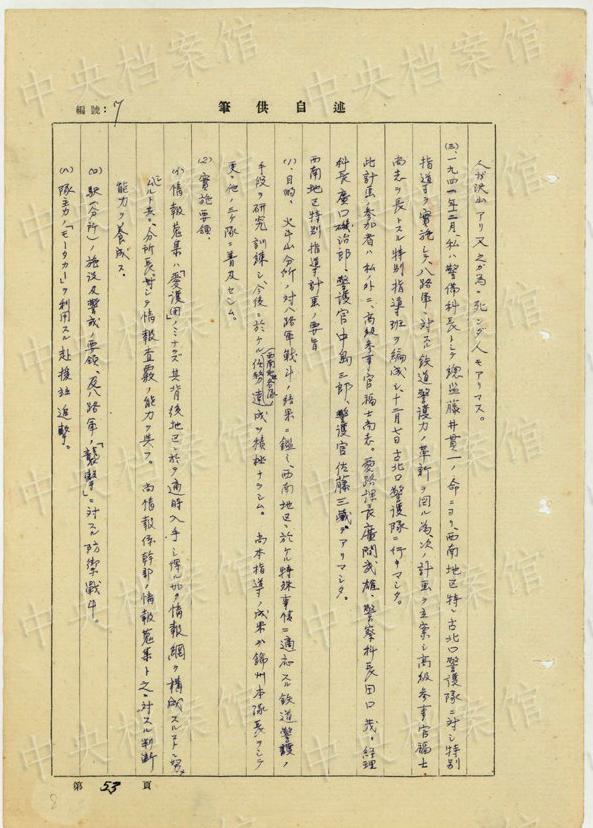 編號：7
述自供筆
人が沢山アリ又之ガ為ニ死ンダ人モアリマス。
(三)、一九四一年二月、私ハ警備科長トシテ總監藤井貫一ノ命ニヨリ、西南地区特ニ古北口警護隊ニ対シ特別
指導ヲ實施シ、八路軍ニ対スル鉄道警護力ノ革新ヲ図ル為、次ノ計画ヲ立案シ高級参事官福士
尚志ヲ長トスル特別指導班ヲ編成シ、十二月七日古北口警護隊ニ行キマシタ。
此計画ノ参加者ハ私ノ外ニ、高級参事官福士尚志。愛路課長廣間武雄、警察科長田口 、経理
科長廣口磯治郎、警護官中島三郎、警護官佐藤三蔵デアリマシタ。
西南地区特別指導計画ノ要旨
(1)、目的、火斗山分所ノ対八路軍戦斗ノ結果ニ鑑ミ、西南地区ニ於ケル特殊事情ニ適応スル鉄道警護ノ
手段ヲ研究訓練シ、今後ニ於ケル(西南地区各隊)任務達成ヲ積極ナラシム。尚本指導ノ成果ハ錦州本隊長ヲシテ
更ニ他ノ三ケ隊ニ普及セシム。
(2) 實施要領
(イ) 情報蒐集ハ「愛護団」ノミナラズ其背後地区ニ於テ適時入手シ得ル如ク情報網ヲ構成スルコトニ努
ムルト共ニ、分所長ニ対シテ情報査覈ノ能力ヲ与フ。尚情報係幹部ノ情報蒐集ト之ニ対スル判断
能力ヲ養成ス。
(ロ) 駅(分所)ノ施設及警戒ノ要領、及八路軍ノ「襲撃」ニ対スル防禦戦斗。
(ハ) 隊主力ノ「モータカー」ヲ利用スル赴援並追撃。
第53頁
中央档案馆